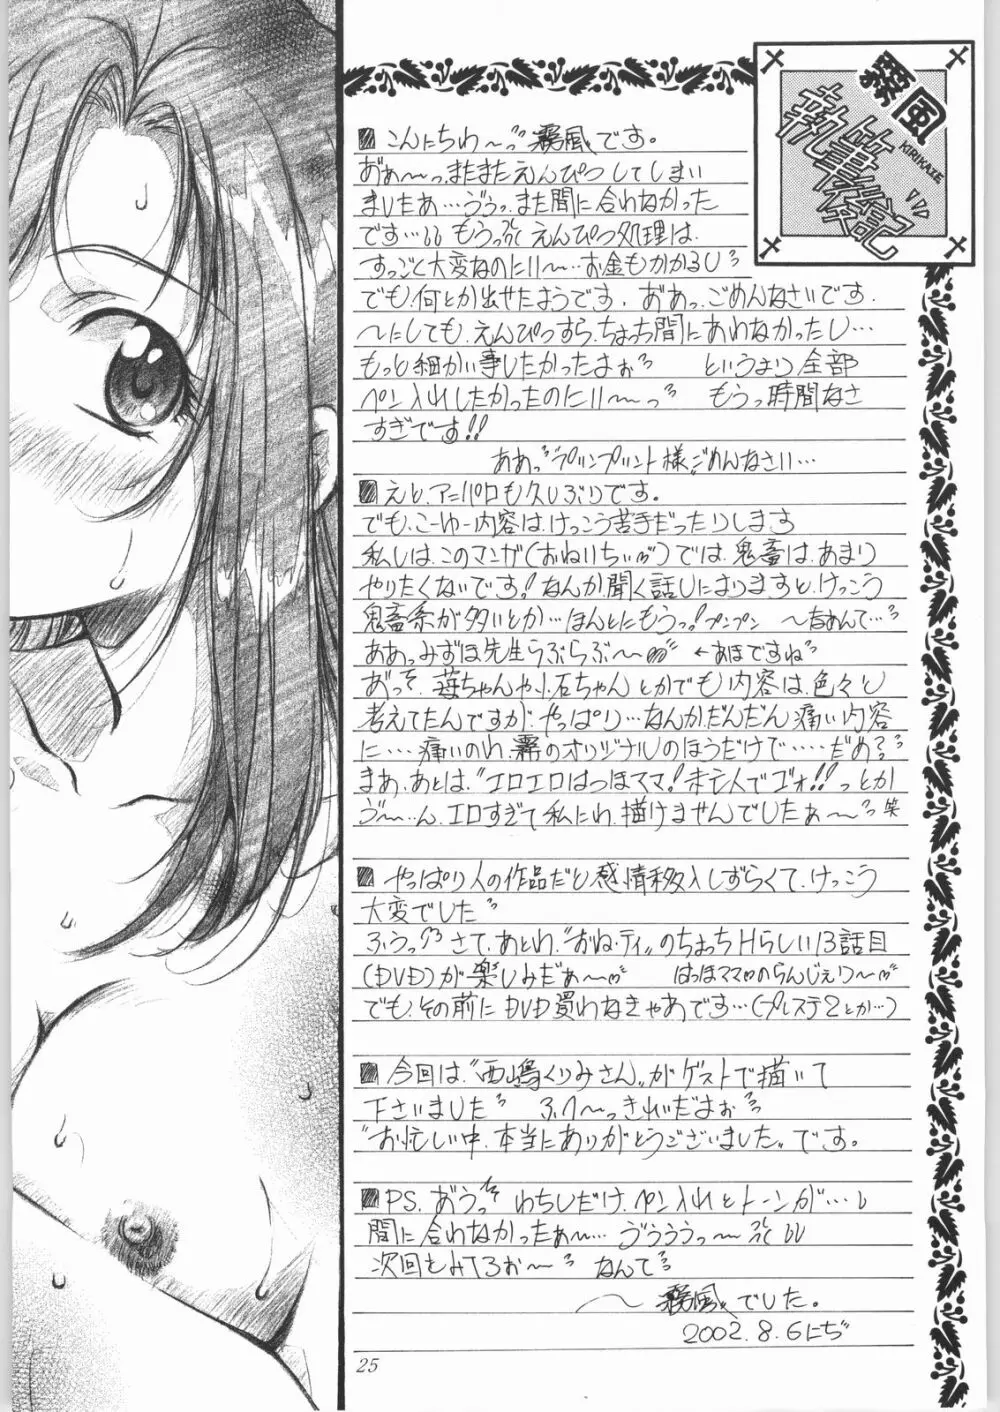 霧風
KIRIKAZE
執筆後記
■こんにちわ〜っ"霧風です。
おぁ〜っ、またまたえんぴつしてしまい
ましたぁ…ゔぅっ、また間に合わなかった
です…もうっ えんぴつ処理は、
すっごく大変なのにII〜…お金もかかるし
でも、何とか出せたようです、おあっ、ごめんなさいです、
〜にしても、えんぴつすら、ちょっち間にあわなかったし…
もっと細かい事したかったよぉ というより全部
ペン入れしたかったのにII〜っ もうっ時間なさ
すぎです!!
ああっ プリンプリント様、ごめんなさい…
■えと、アニパロも久しぶりです。
でも、こーゆー内容は、けっこう苦手だったりします
私しは、このマンガ(おねIIちぃ)では、鬼畜は、あまり
やりたくないです!なんか、聞く話しによりますと、けっこう
鬼畜系が多いとか…ほんとにもうっ!プンプン 〜なあんて…
ああっみずほ先生らぶらぶ〜 ←あほですね
あっ、苺ちゃんや、小石ちゃんとかでも内容は、色々と
考えてたんですが、やっぱり…なんか、だんだん痛い内容
に…痛いのわ、霧のオリジナルのほうだけで……だめ?
まあ、あとは、"エロエロはっほママ!未亡人でゴォ!!っとか
ゔ〜…ん、エロすぎて私にわ、描けませんでしたぁ〜 笑
■やっぱり人の作品だと感情移入しずらくて、けっこう
大変でした
ふうっ さて、あとわ、"おね・ティ〃のちょっちHらしい13話目
(DVD)が楽しみだぁ〜 はっほママのらんじぇりー
でも、その前にDVD買わなきゃあです…(プレステ2とか…)
■今回は、"西嶋くりみさん〃がゲストで描いて
下さいました ふ…〜っきれいだよぉ
"お忙しい中、本当にありがとうございました〃です。
■PS.おうっ わちしだけ、ペン入れとトーンが…
間に合わなかったぁ〜…ゔううぅっ〜
次回をみてろぉ〜 なんて
〜霧風〃でした。
2002.8.6にぢ
25